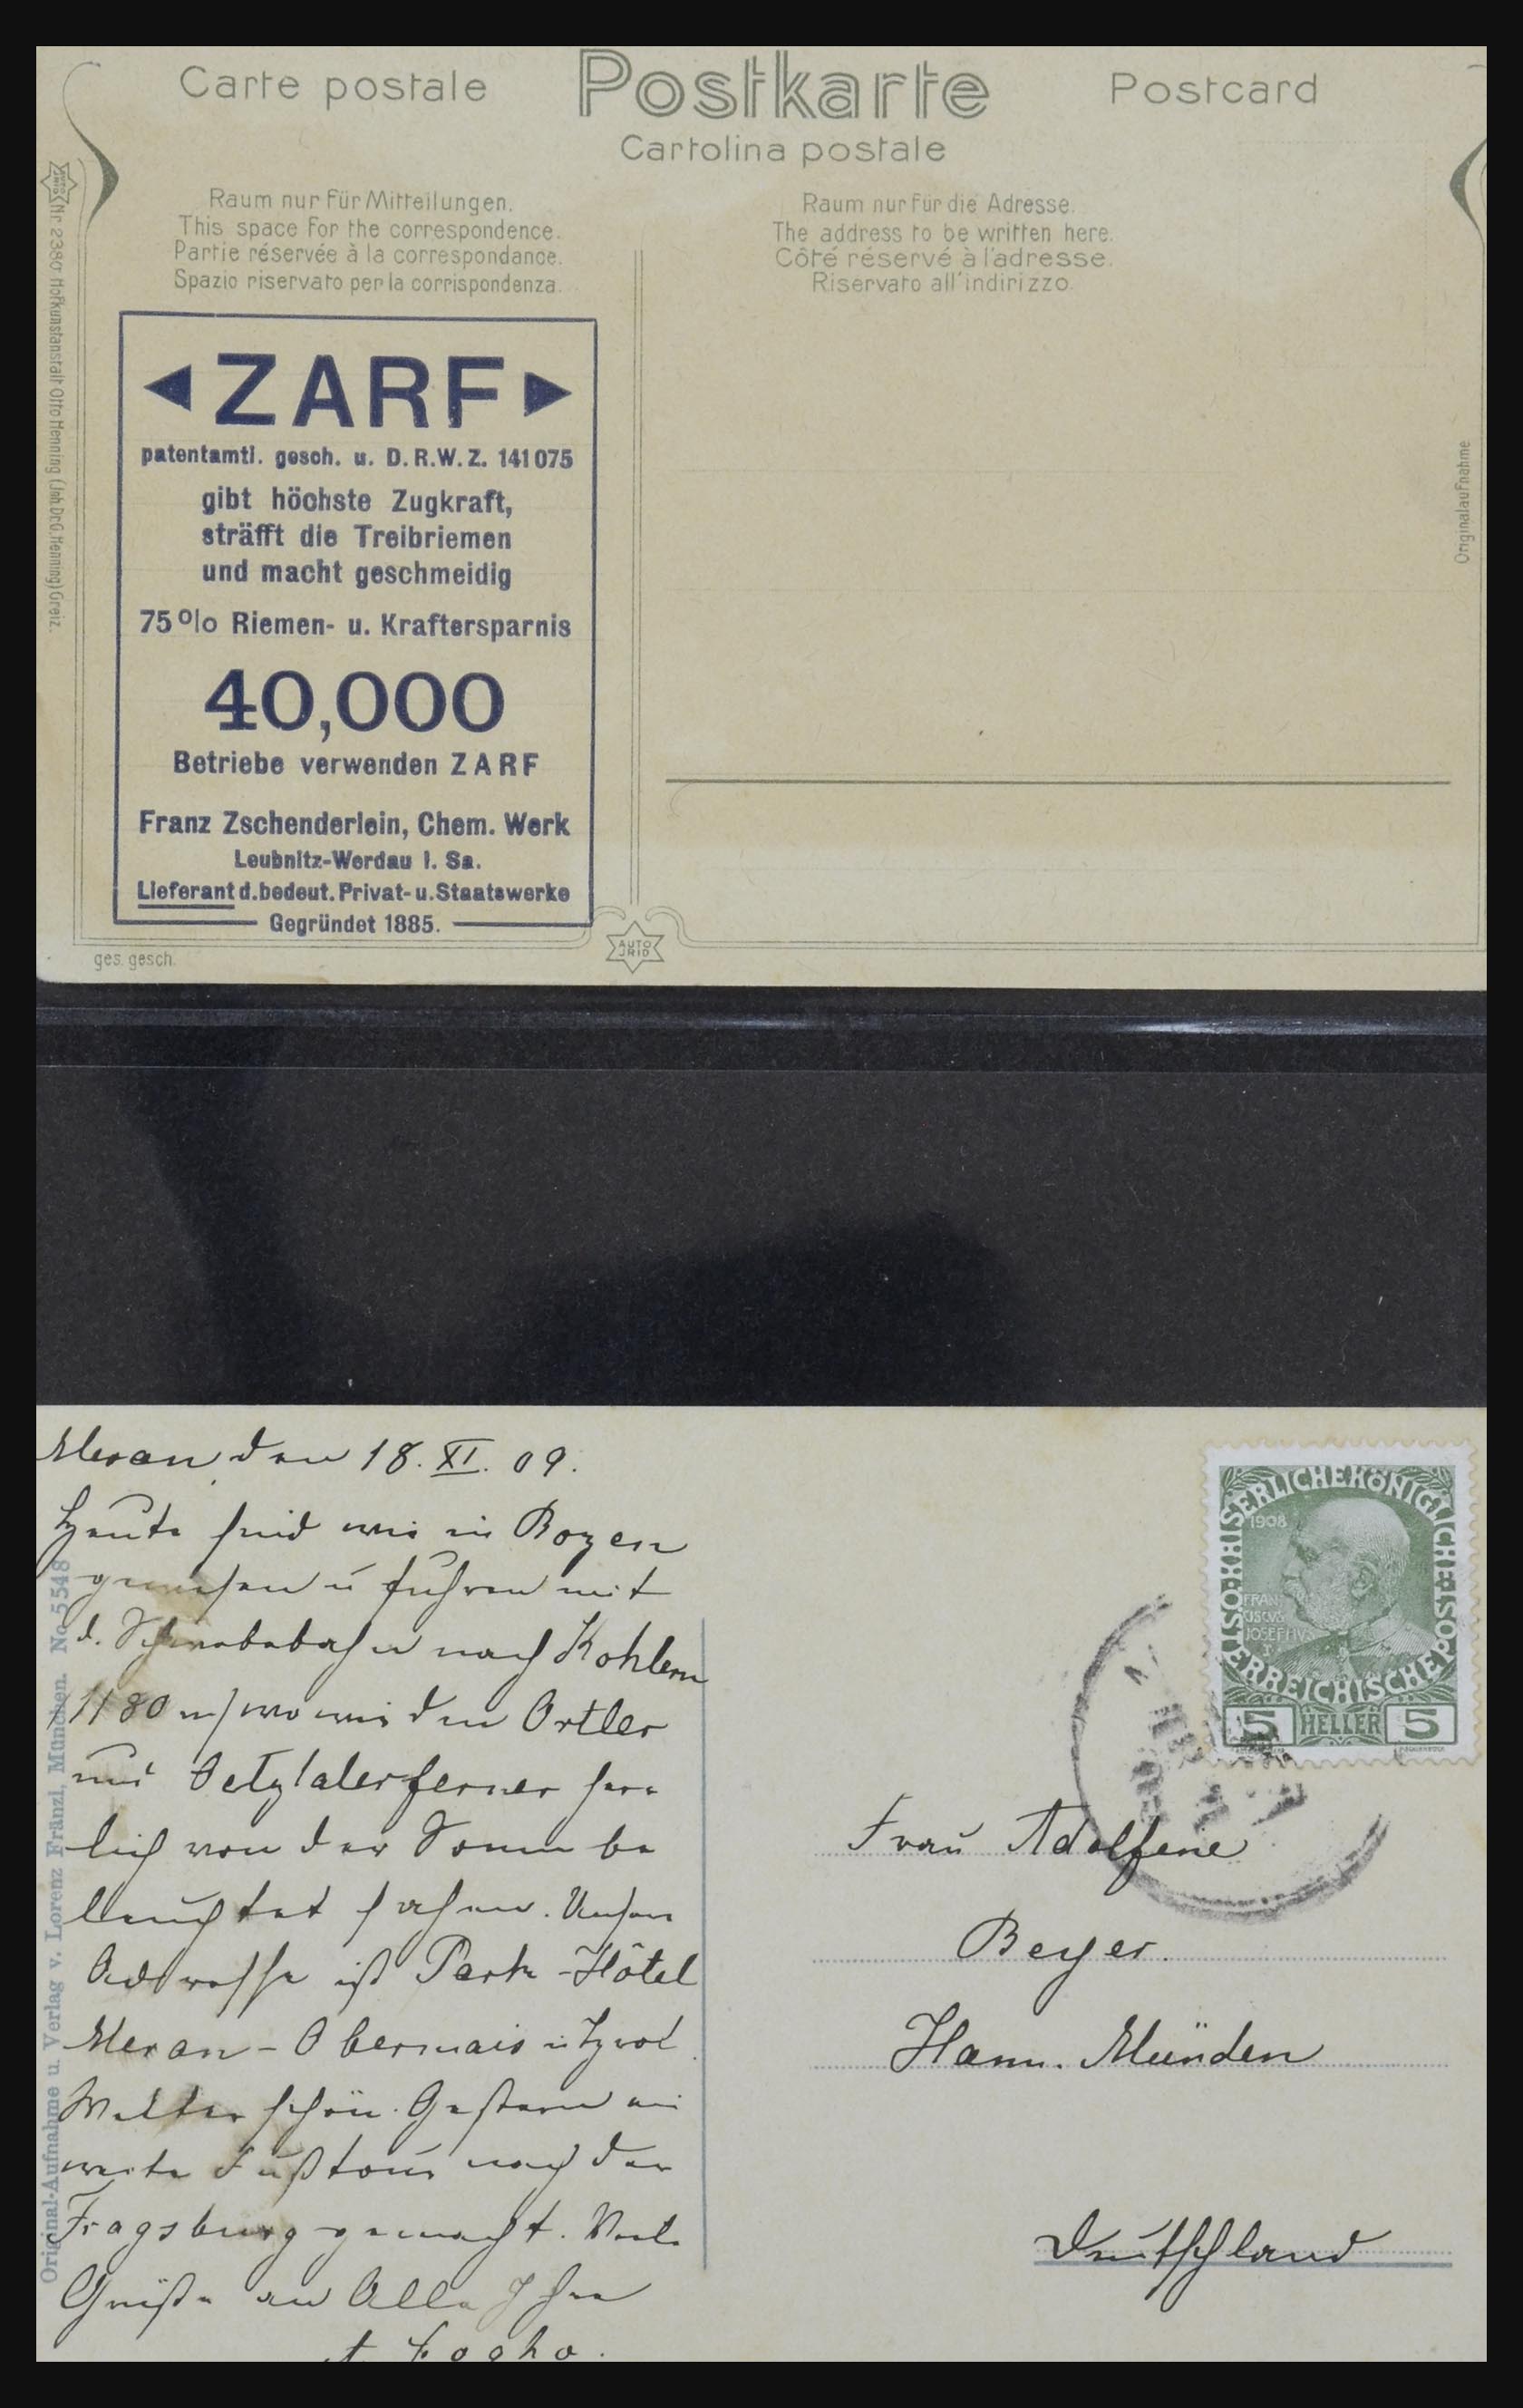 Carte postale
Postkarte
Postcard
Cartolina postale
Raum nur für Mitteilungen.
This space for the correspondence.
Partie réservée à la correspondance.
Spazio riservato per la corrispondenza.
Raum nur für die Adresse.
The address to be written here.
Côté réservé à l'adresse.
Riservato all'indirizzo.
Nr. 2380 Hofkunstanstalt Otto Henning (Inh. Dr. G. Henning) Greiz.
Originalaufnahme
ZARF
patentamtl. gesch. u. D.R.W.Z. 141075
gibt höchste Zugkraft,
sträfft die Treibriemen
und macht geschmeidig
75% Riemen- u. Kraftersparnis
40,000
Betriebe verwenden ZARF
Franz Zschenderlein, Chem. Werk
Leubnitz-Werdau i. Sa.
Lieferant d. bedeut. Privat- u. Staatswerke
Gegründet 1885.
ges. gesch.
AUTO
IRID
Meran den 18. XI. 09.
Heute sind wir in Bozen
gewesen u fuhren mit
d. Schwebebahn nach Kohlern
1180 m) wo wir den Ortler
und Oetztalerferner herr
lich von der Sonne be
leuchtet sahen. Unsere
Adresse ist Park-Hôtel
Meran - Obermais i Tyrol
Wetter schön. Gestern ein
weite Fußtour nach der
Fragsburg gemacht. Viele
Grüße an Alle Ihre
Original-Aufnahme u. Verlag v. Lorenz Fränzl, München. No 5548
KAISERLICHE KÖNIGLICHE ÖSTERREICHISCHE POST
1908
FRAN
CISCVS
JOSEPHVS
5 HELLER 5
Frau Adolfene
Beyer.
Hann. Münden
Deutschland